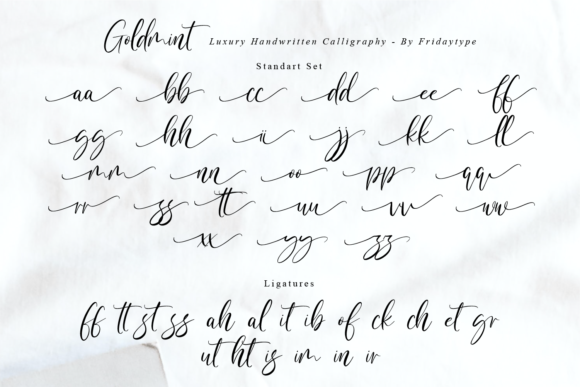 Goldmint Luxury Handwritten Calligraphy - By Fridaytype
Standart Set
aa bb cc dd ee ff
gg hh ii jj kk ll
mm nn oo pp qq
rr ss tt uu vv ww
xx yy zz
Ligatures
ff tt st ss ah al it ib of ck ch et gr
ut ht is im in ir